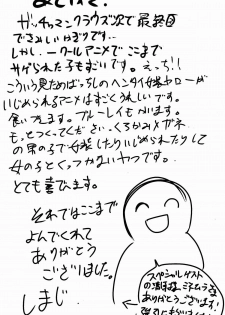 あとがき!
ガッチャマンクラウズ次で最終回
できみしいかぎりです…
しかし、一クールアニメでここまで
サゲられた子もすごいです。えっち!!
こういう見ためばっちしのヘンタイ女装ヤローが
いじめられるアニメはすごくうれしいです。
食いつきます。ブルーレイもかいます。
もっとつくってください、くろかみメガネ
の男の子で女装したりいじめられたりして
女の子とくっつかないヤツです。
とても喜びます。
それではここまで
よんでくれて
ありがとう
ございました。
しまじ
スペシャルゲスト
の
ありがとうございます!